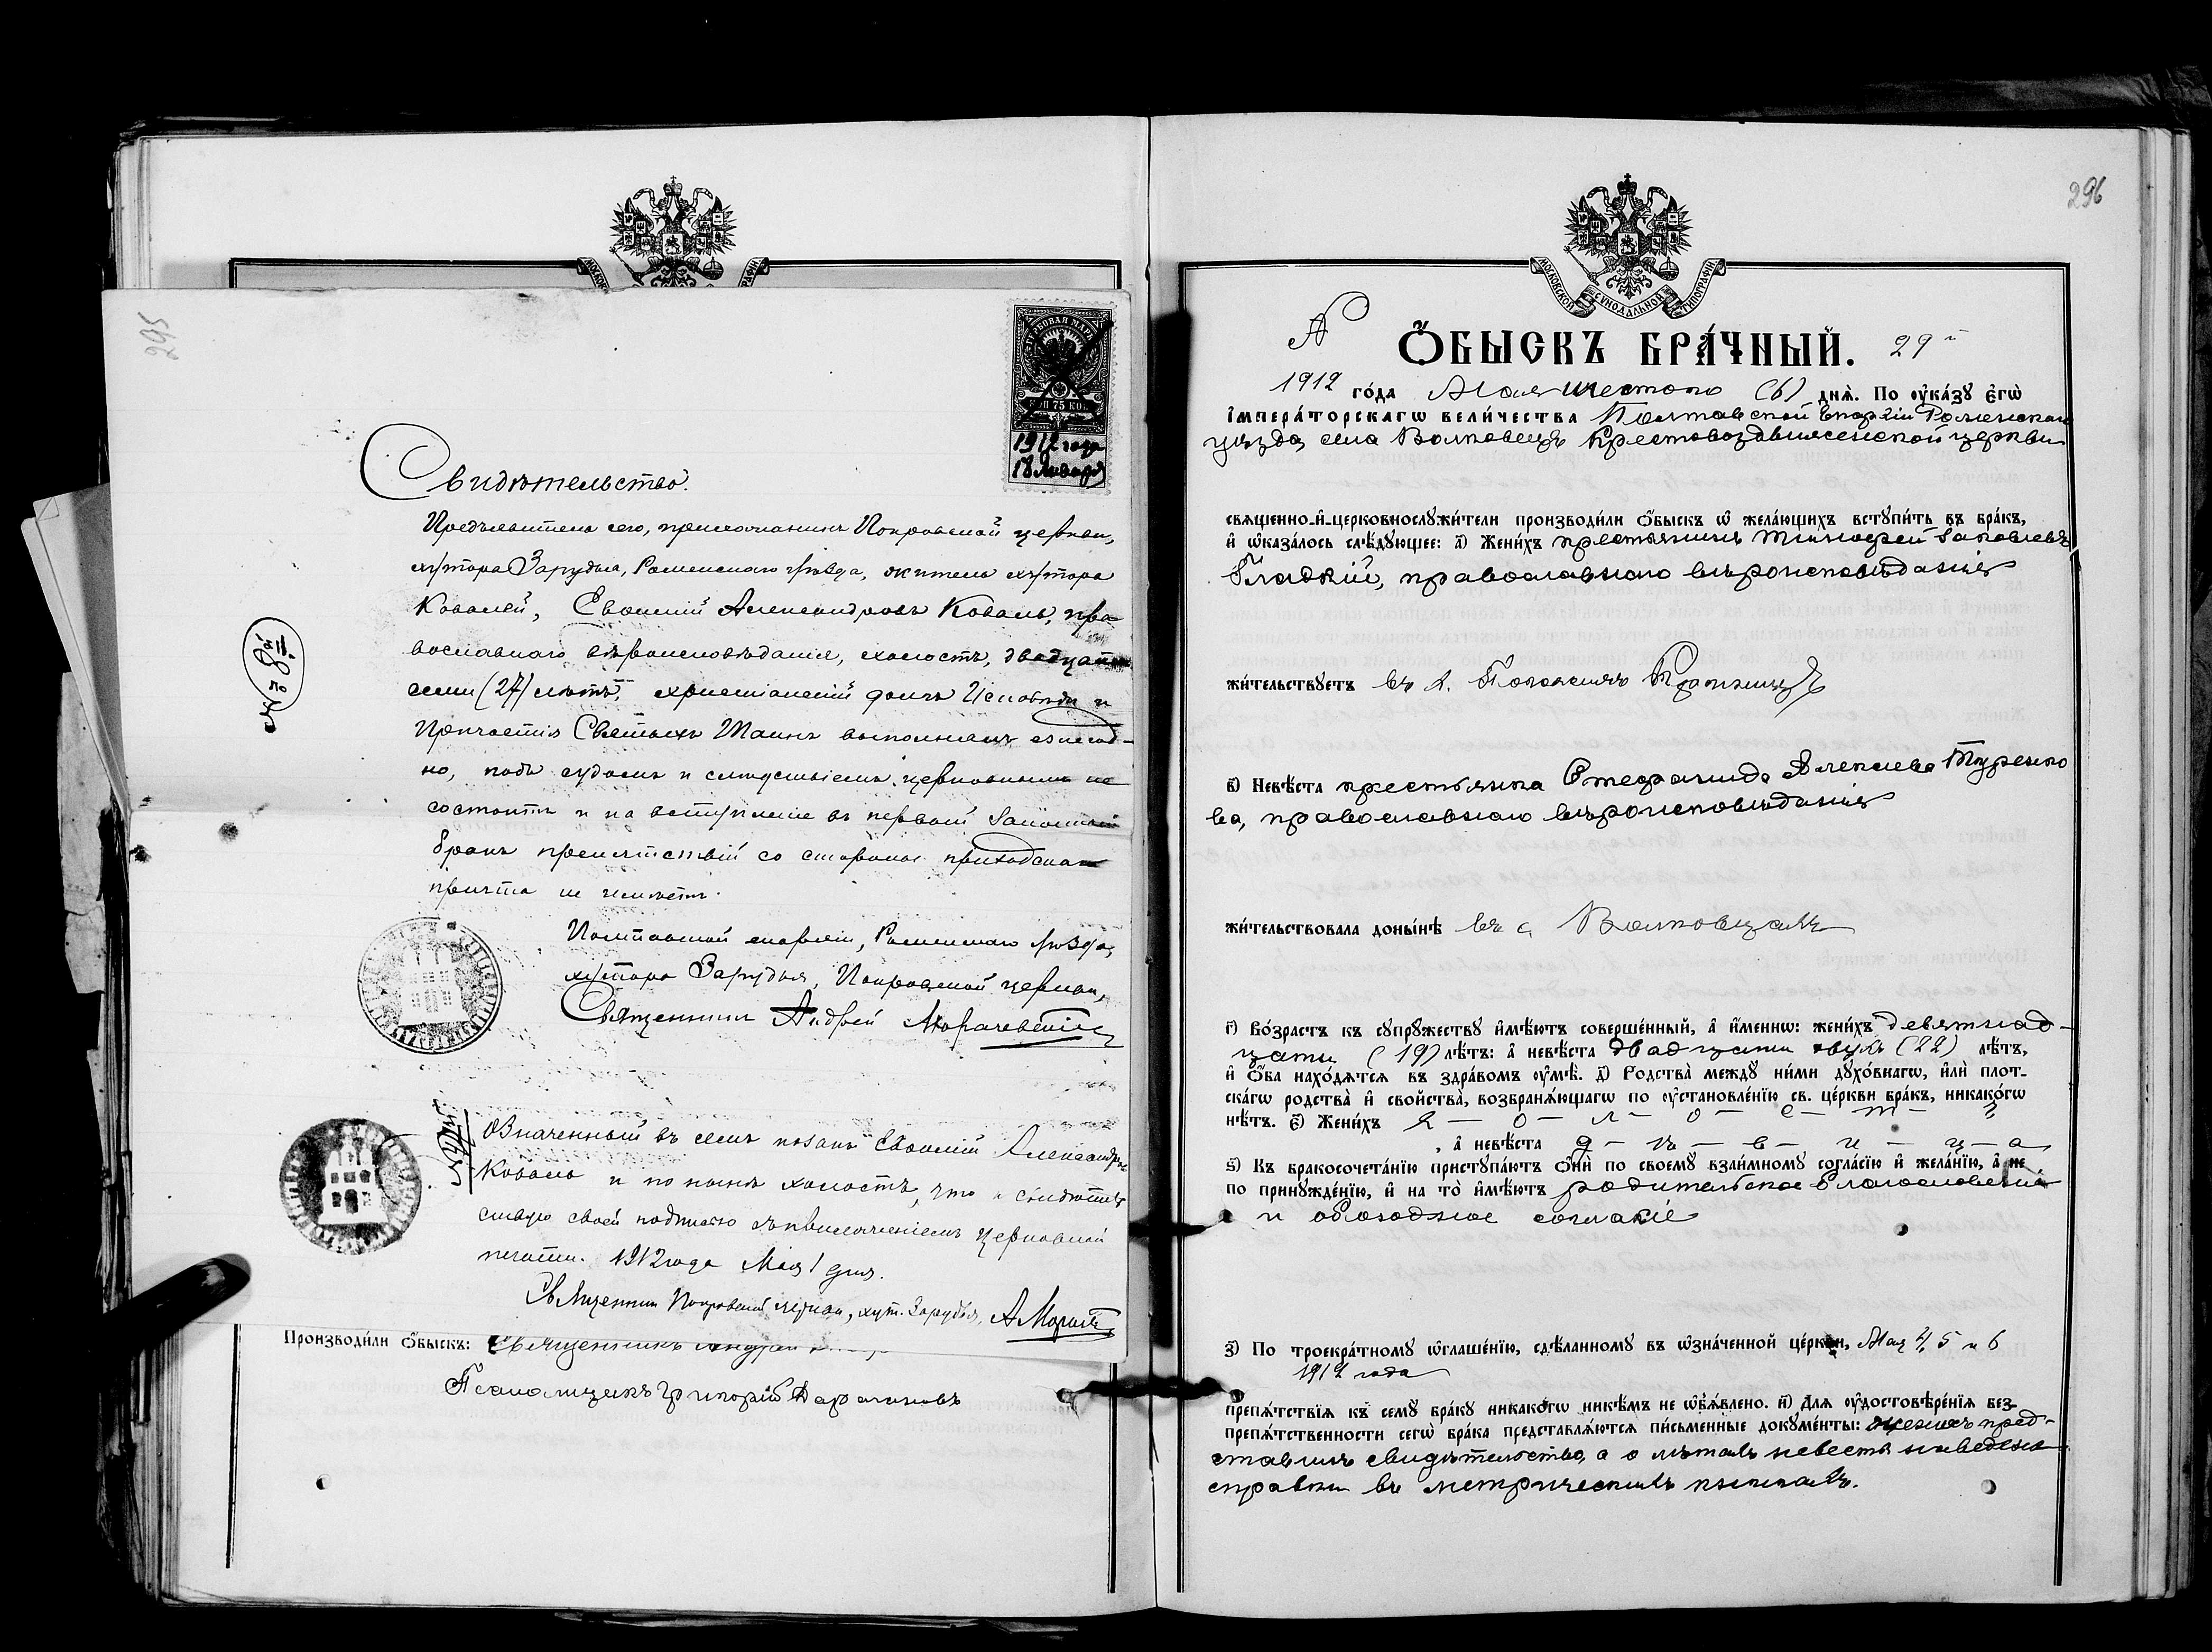 295
КОП 75 КОП
1912 года
18 Января
Свидѣтельство.
Предъявитель сего, прихожанинъ Покровской церкви,
хутора Зарудья, Роменскаго уѣзда, житель хутора
Ковалей, Евфимій Александровъ Коваль, пра-
вославнаго вѣроисповѣданія, холостъ, двадцати
семи (27) лѣтъ, христіанскій долгъ Исповѣди и
Причастія Святыхъ Таинъ выполнялъ ежегод-
но, подъ судомъ и слѣдствіемъ церковнымъ не
состоитъ и на вступленіе въ первый законный
бракъ препятствій со стороны приходскаго
причта не имѣетъ.
Полтавской епархіи, Роменскаго уѣзда,
хутора Зарудья, Покровской церкви,
Священникъ Андрей
№ 8й
Означенный въ семъ Евфимій Александровъ
Коваль и по нынѣ холостъ, что и свидѣтель-
ствую своей подписью съ приложеніемъ церковной
печати. 1912 года Мая 1 дня.
Священникъ Покровской церкви, хут. Зарудья, А.
Производи́ли ѻ҆́быскъ: Священникъ
Псаломщикъ Григорій
296
МОСКОВСКОЙ СѴНОДАЛЬНОЙ ТИПОГРАФІИ
Ѻ҆́БЫСКЪ БРА́ЧНЫЙ. 29й
1912 го́да Мая шестого (6) днѧ̀. По ᲂу҆ка́зꙋ є҆гѡ̀
і҆мпера́торскагѡ вели́чества Полтавской Епархіи Роменскаго
уѣзда, села Волковецъ Крестовоздвиженской церкви
свѧщенно-и҆-церковнослꙋжи́тели производи́ли ѻ҆́быскъ ѡ҆ жела́ющихъ встꙋпи́ть въ бра́къ,
и҆ ѡ҆каза́лось слѣ́дꙋющее: а҃) Жени́хъ крестьянинъ Тимофей Іаковлевъ
Гладкій, православнаго вѣроисповѣданія
жи́тельствꙋетъ въ х.
в҃) Невѣ́ста крестьянка Стефанида Алексіева Туренко
ва, православнаго вѣроисповѣданія
жи́тельствовала доны́нѣ въ с. Волковцахъ
г҃) Во́зрастъ къ сꙋпрꙋ́жествꙋ и҆мѣ́ютъ соверше́нный, а҆ и҆́меннѡ: жени́хъ девятнад-
цати (19) лѣ́тъ: а҆ невѣ́ста двадцати двухъ (22) лѣ́тъ,
и҆ ѻ҆́ба нахо́дѧтсѧ въ здра́вомъ ᲂу҆мѣ̀. д҃) Родства̀ междꙋ ни́ми дꙋхо́внагѡ, и҆лѝ плот-
ска́гѡ родства̀ и҆ свойства̀, возбранѧ́ющагѡ по ᲂу҆становле́нїю св. це́ркви бра́къ, никако́гѡ
нѣ́тъ. є҃) Жени́хъ х – о – л – о – с – т – ъ
, а҆ невѣ́ста д – ѣ – в – и – ц – а
ѕ҃) Къ бракосочета́нїю пристꙋпа́ютъ ѻ҆нѝ по своемꙋ̀ взаи́мномꙋ согла́сїю и҆ жела́нїю, а҆ не
по принꙋжде́нїю, и҆ на то̀ и҆мѣ́ютъ родительское благословеніе
и обоюдное согласіе
з҃) По троекра́тномꙋ ѡ҆глаше́нїю, сдѣ́ланномꙋ въ ѡ҆зна́ченной це́ркви, Мая 4, 5 и 6
1912 года
препѧ́тствїѧ къ семꙋ̀ бра́кꙋ никако́гѡ никѣ́мъ не ѡ҆б̾ѧ́влено. и҃) Длѧ ᲂу҆достовѣре́нїѧ без-
препѧ́тственности сегѡ̀ бра́ка представлѧ́ютсѧ пи́сьменные докꙋме́нты: женихъ пред-
ставилъ свидѣтельство, а о лѣтахъ невесты наведены
справки въ метрическихъ книгахъ.